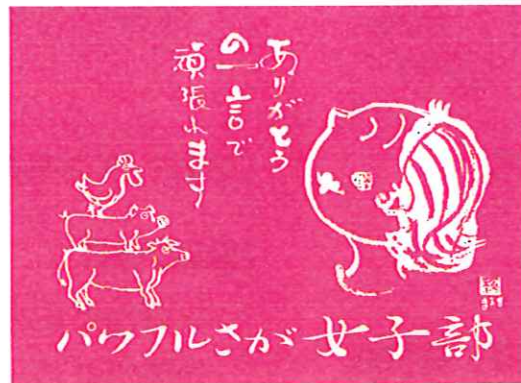 ありがとう
の一言で
頑張れます
パワフルさが女子部